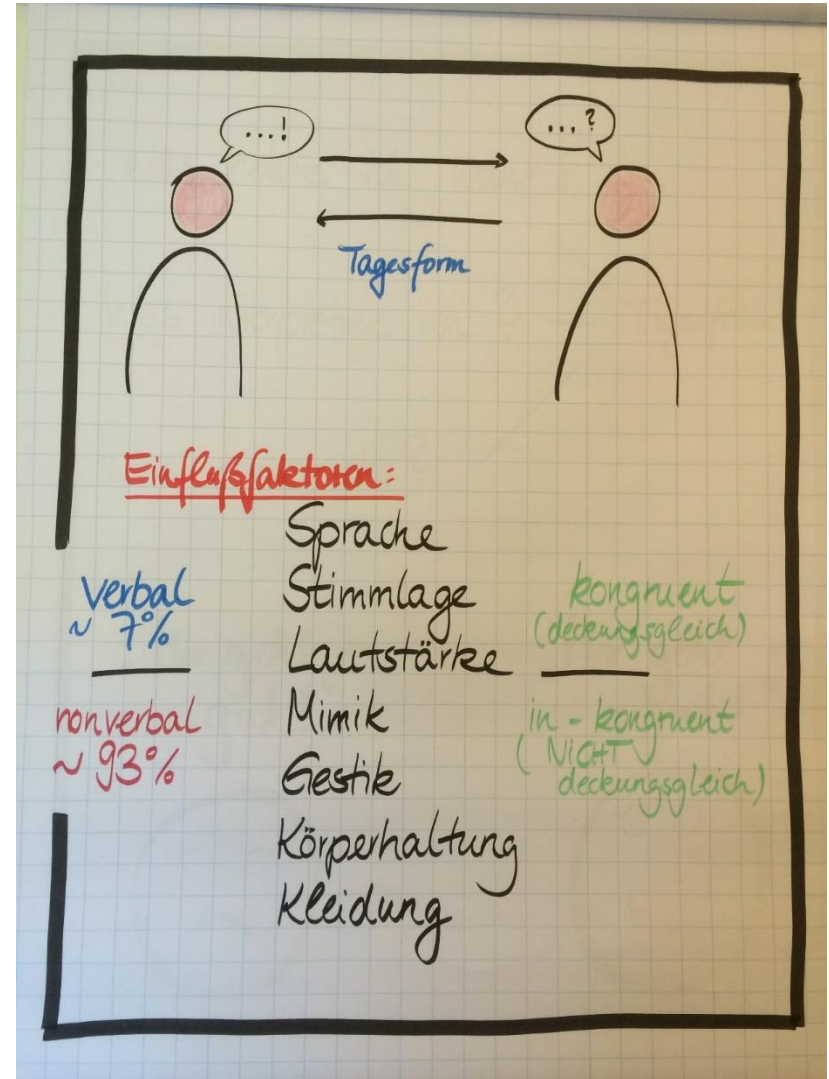 ...!
...?
Tagesform
Einflußfaktoren:
Sprache
Stimmlage
Lautstärke
Mimik
Gestik
Körperhaltung
Kleidung
verbal
~ 7%
nonverbal
~ 93%
kongruent
(deckungsgleich)
in - kongruent
(NiCHT
deckungsgleich)